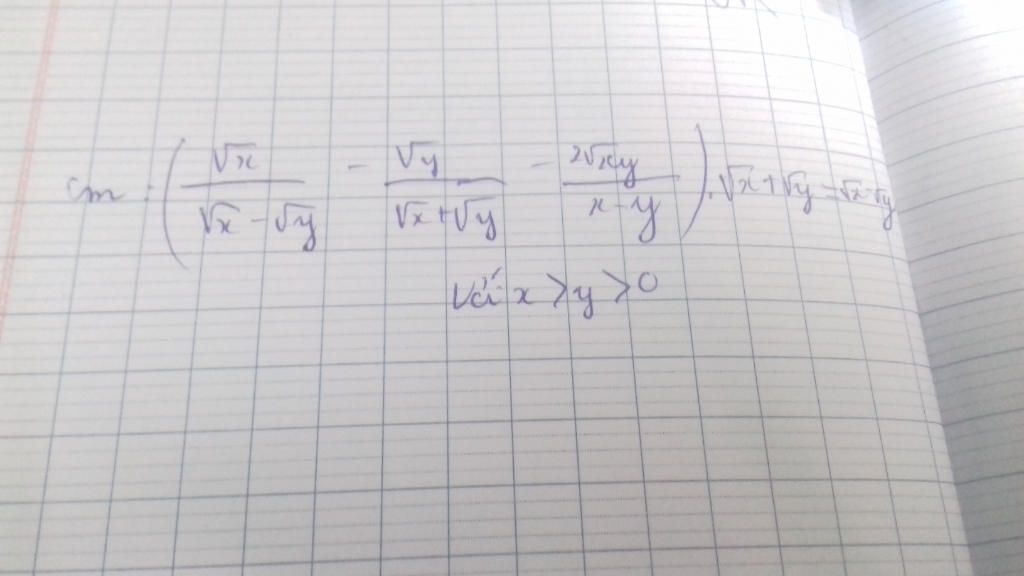 cm : ( √x / (√x - √y) - √y / (√x + √y) - 2√xy / (x - y) ) . √x + √y = √x - √y
Với x > y > 0